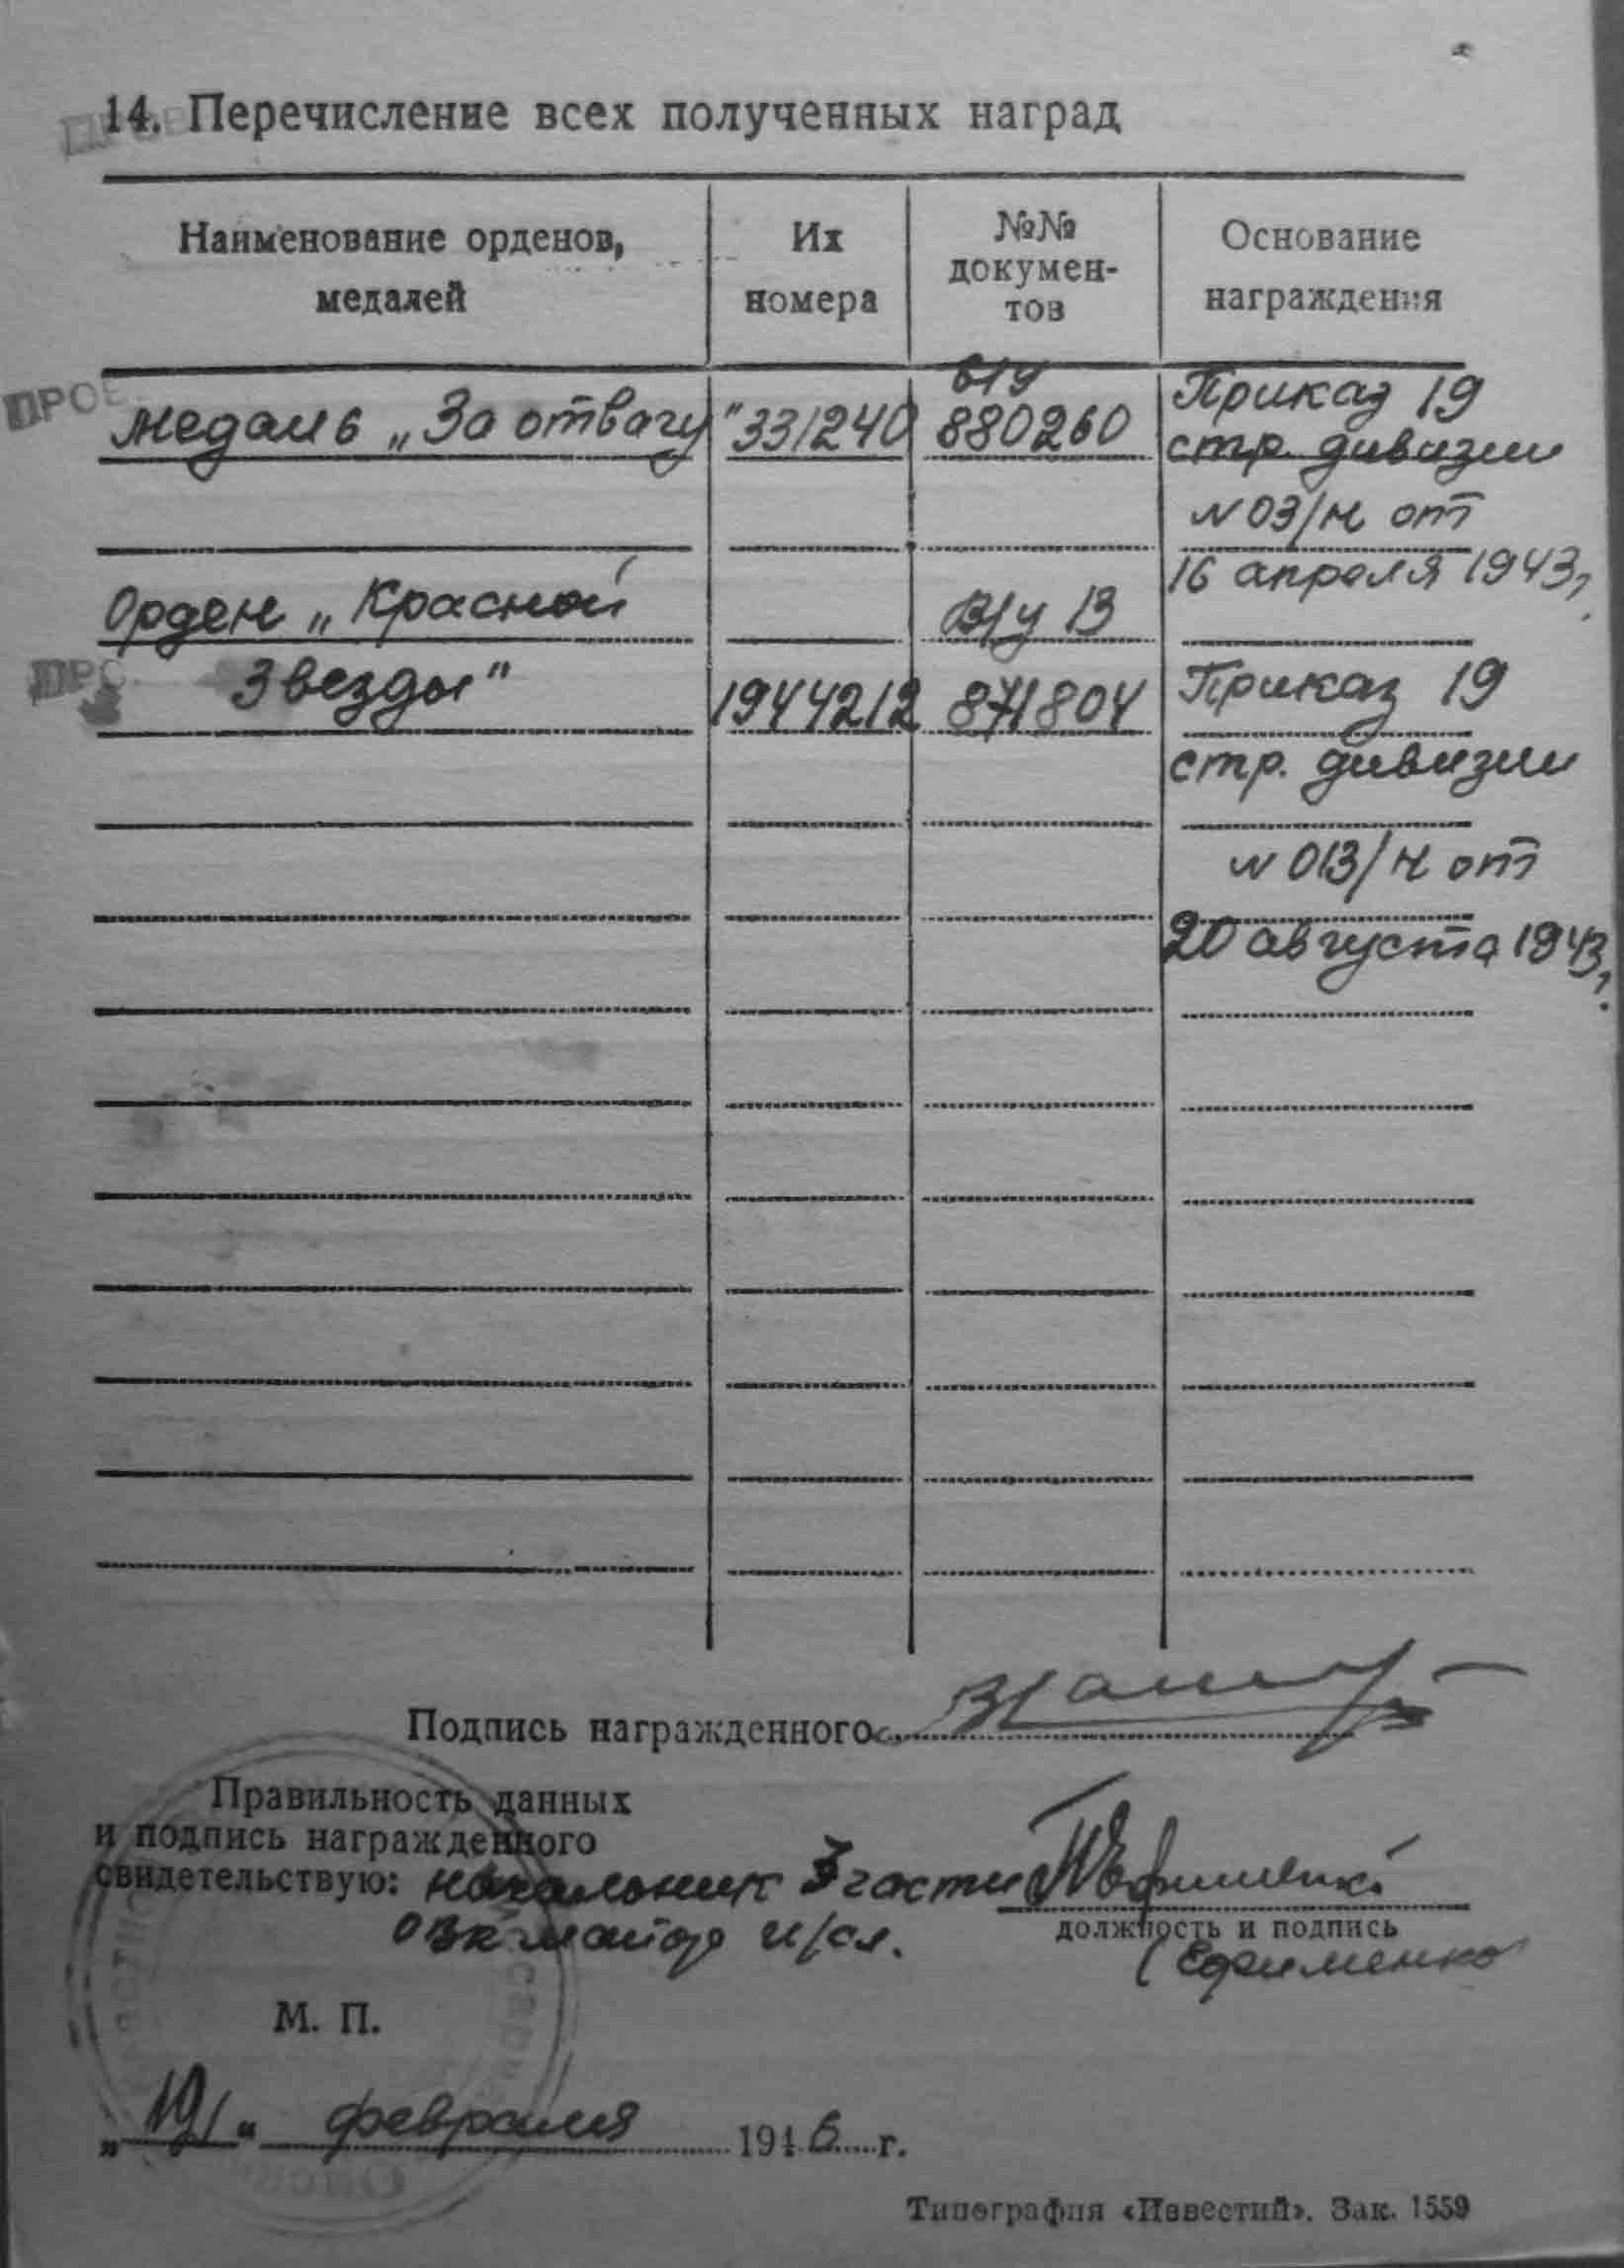 14. Перечисление всех полученных наград
Наименование орденов, медалей
Их номера
№№ докумен-тов
Основание награждения
ПРОВ
Медаль „За отвагу" 331240 б/у 880260 Приказ 19
стр. дивизии
N 03/н от
16 апреля 1943 г.
Орден „Красной В/у В
Звезды" 1944212 871804 Приказ 19
стр. дивизии
N 013/н от
20 августа 1943 г.
Подпись награжденного
Правильность данных
и подпись награжденного
свидетельствую: начальник 3 части
ОВК майор и/сл.
должность и подпись
(Ефименко
М. П.
„19" февраля 1946 г.
Типография «Известий». Зак. 1559